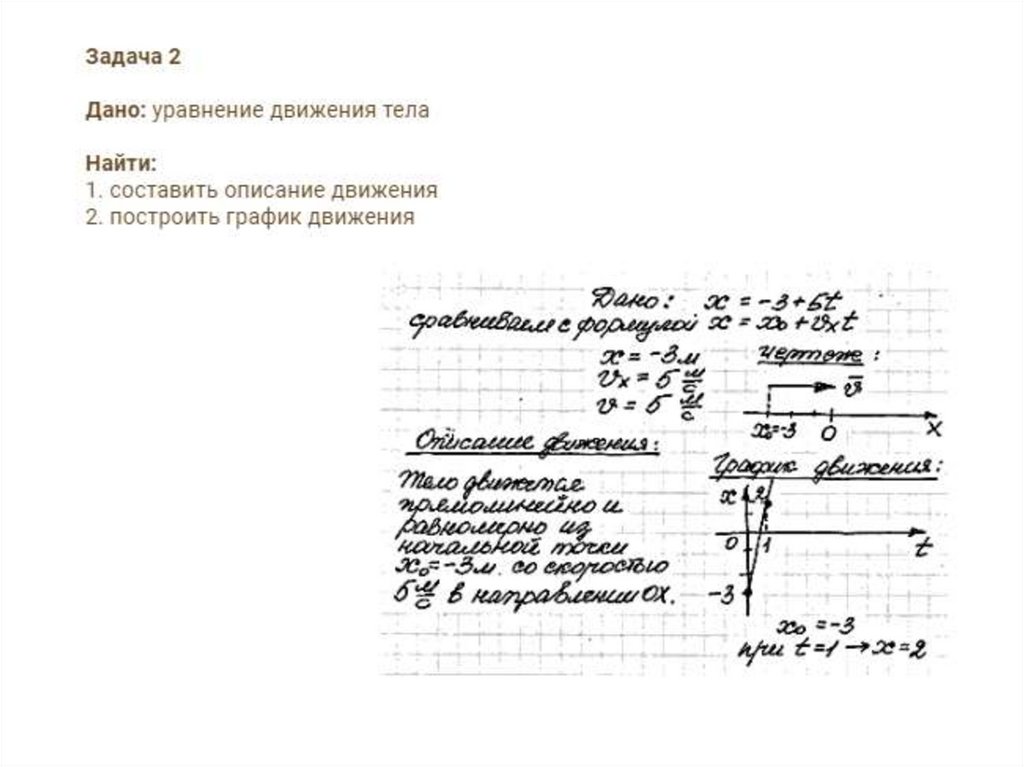 Задача 2
Дано: уравнение движения тела
Найти:
1. составить описание движения
2. построить график движения
Дано: x = -3+5t
сравниваем с формулой x = x₀+υₓt
x = -3м
υₓ = 5 м/с
υ = 5 м/с
чертеж:
υ
x₀=-3 0 x
Описание движения:
Тело движется
прямолинейно и
равномерно из
начальной точки
x₀=-3м. со скоростью
5 м/с в направлении OX.
График движения:
x 2
0 1 t
-3
x₀ = -3
при t=1 → x=2